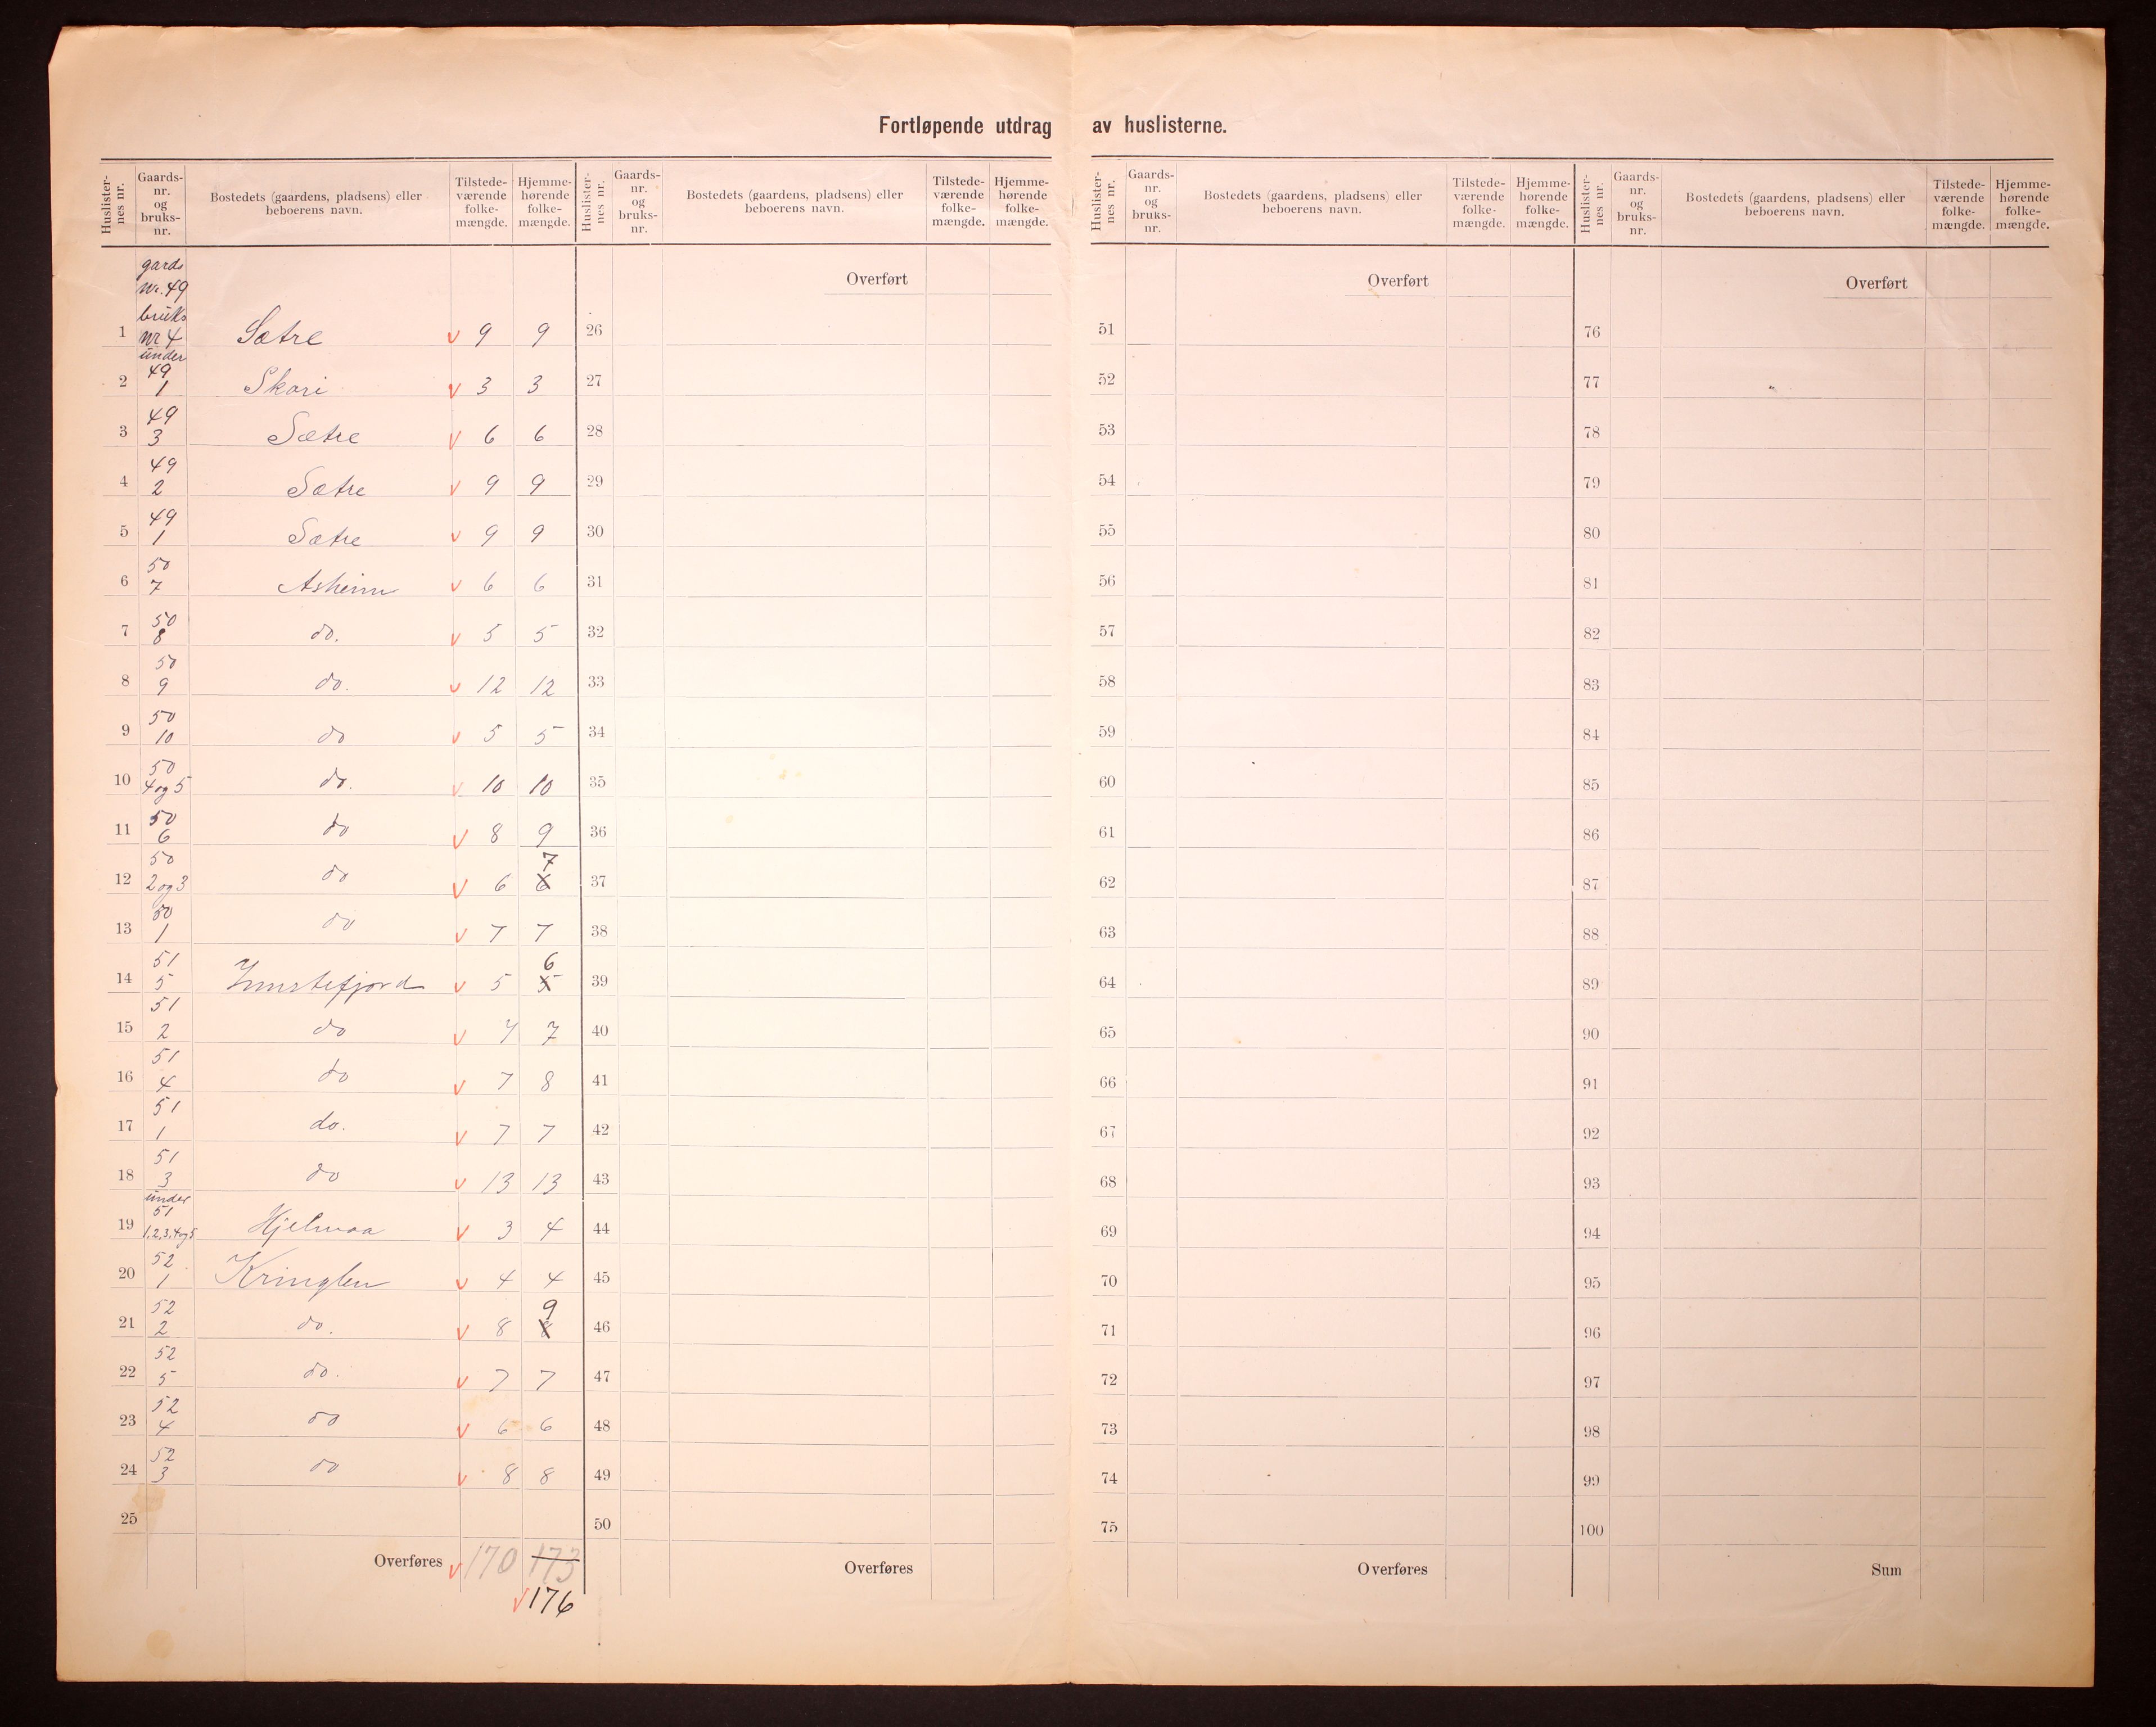 Fortløpende utdrag av huslisterne.
Huslister-nes nr. Gaards-nr. og bruks-nr. Bostedets (gaardens, pladsens) eller beboerens navn. Tilstede-værende folke-mængde. Hjemme-hørende folke-mængde. Huslister-nes nr. Gaards-nr. og bruks-nr. Bostedets (gaardens, pladsens) eller beboerens navn. Tilstede-værende folke-mængde. Hjemme-hørende folke-mængde. Huslister-nes nr. Gaards-nr. og bruks-nr. Bostedets (gaardens, pladsens) eller beboerens navn. Tilstede-værende folke-mængde. Hjemme-hørende folke-mængde. Huslister-nes nr. Gaards-nr. og bruks-nr. Bostedets (gaardens, pladsens) eller beboerens navn. Tilstede-værende folke-mængde. Hjemme-hørende folke-mængde.
gards Nr. 49 Overført Overført Overført
1 bruks nr 4 Sætre v 9 9 26 51 76
2 under 49 1 Skori v 3 3 27 52 77
3 49 3 Sætre v 6 6 28 53 78
4 49 2 Sætre v 9 9 29 54 79
5 49 1 Sætre v 9 9 30 55 80
6 50 7 Asheim v 6 6 31 56 81
7 50 8 do. v 5 5 32 57 82
8 50 9 do. v 12 12 33 58 83
9 50 10 do v 5 5 34 59 84
10 50 4 og 5 do. v 10 10 35 60 85
11 50 6 do v 8 9 36 61 86
12 50 2 og 3 do v 6 6 7 37 62 87
13 50 1 do v 7 7 38 63 88
14 51 5 v 5 5 6 39 64 89
15 51 2 do v 7 7 40 65 90
16 51 4 do v 7 8 41 66 91
17 51 1 do. v 7 7 42 67 92
18 51 3 do v 13 13 43 68 93
19 under 51 1,2,3,4og5 Hjelmaa v 3 4 44 69 94
20 52 1 Kringlen v 4 4 45 70 95
21 52 2 do. v 8 8 9 46 71 96
22 52 5 do. v 7 7 47 72 97
23 52 4 do v 6 6 48 73 98
24 52 3 do v 8 8 49 74 99
25 50 75 100
Overføres v 170 173 Overføres Overføres Sum
v 176